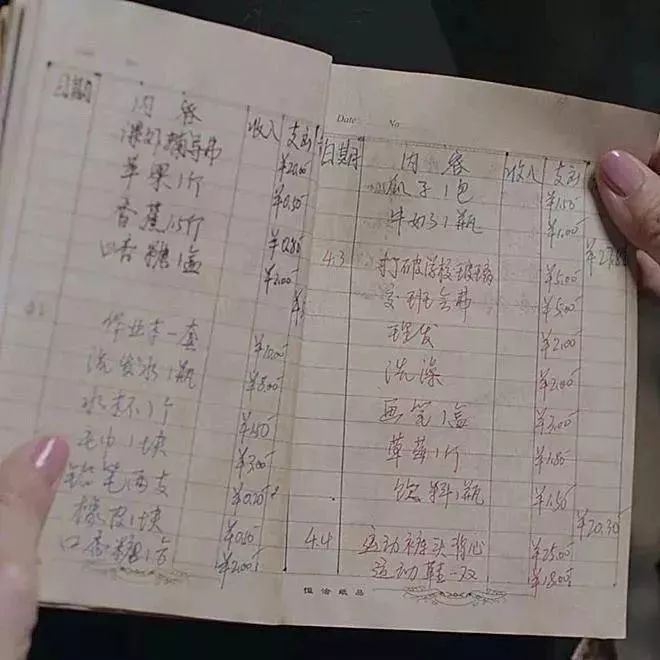 日期 内容 收入 支出
课外辅导书 ¥20.00
苹果1斤 ¥0.50
香蕉1.5斤 ¥0.80
口香糖1盒 ¥2.00
作业本一套 ¥10.00
洗发水1瓶 ¥8.00
水杯1个 ¥1.50
毛巾1块 ¥3.00
铅笔两支 ¥0.20
橡皮1块 ¥0.50
口香糖1盒 ¥2.00
Date No
日期 内容 收入 支出
瓜子1包 ¥1.50
牛奶1瓶 ¥1.00
4.3 打破学校玻璃 ¥5.00
交班会费 ¥5.00
理发 ¥2.00
洗澡 ¥2.00
画笔1盒 ¥3.00
草莓1斤 ¥1.80
饮料1瓶 ¥1.50
¥20.30
4.4 运动裤头背心 ¥25.00
运动鞋一双 ¥18.00
恒洽纸品